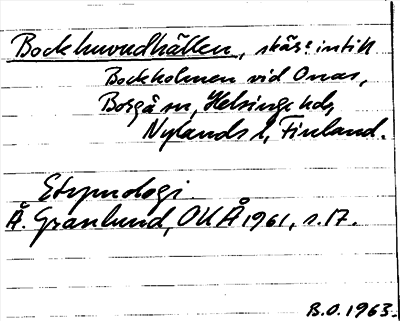 Bockhuvudhällen, skär intill
Bockholmen vid Onas,
Borgå sn, Helsinge hd,
Nylands l, Finland.
Etymologi.
Å. Granlund, OUÅ 1961, s. 17.
B.O. 1963.